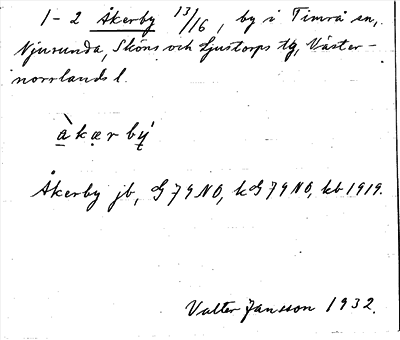 1-2 Åkerby 13/16, by i Timrå sn,
Njurunda, Sköns och Ljustorps tg, Väster-
norrlands l.
àkærbý
Åkerby jb, G 79 NO, kG 79 NO, kb 1919.
Valter Jansson 1932.